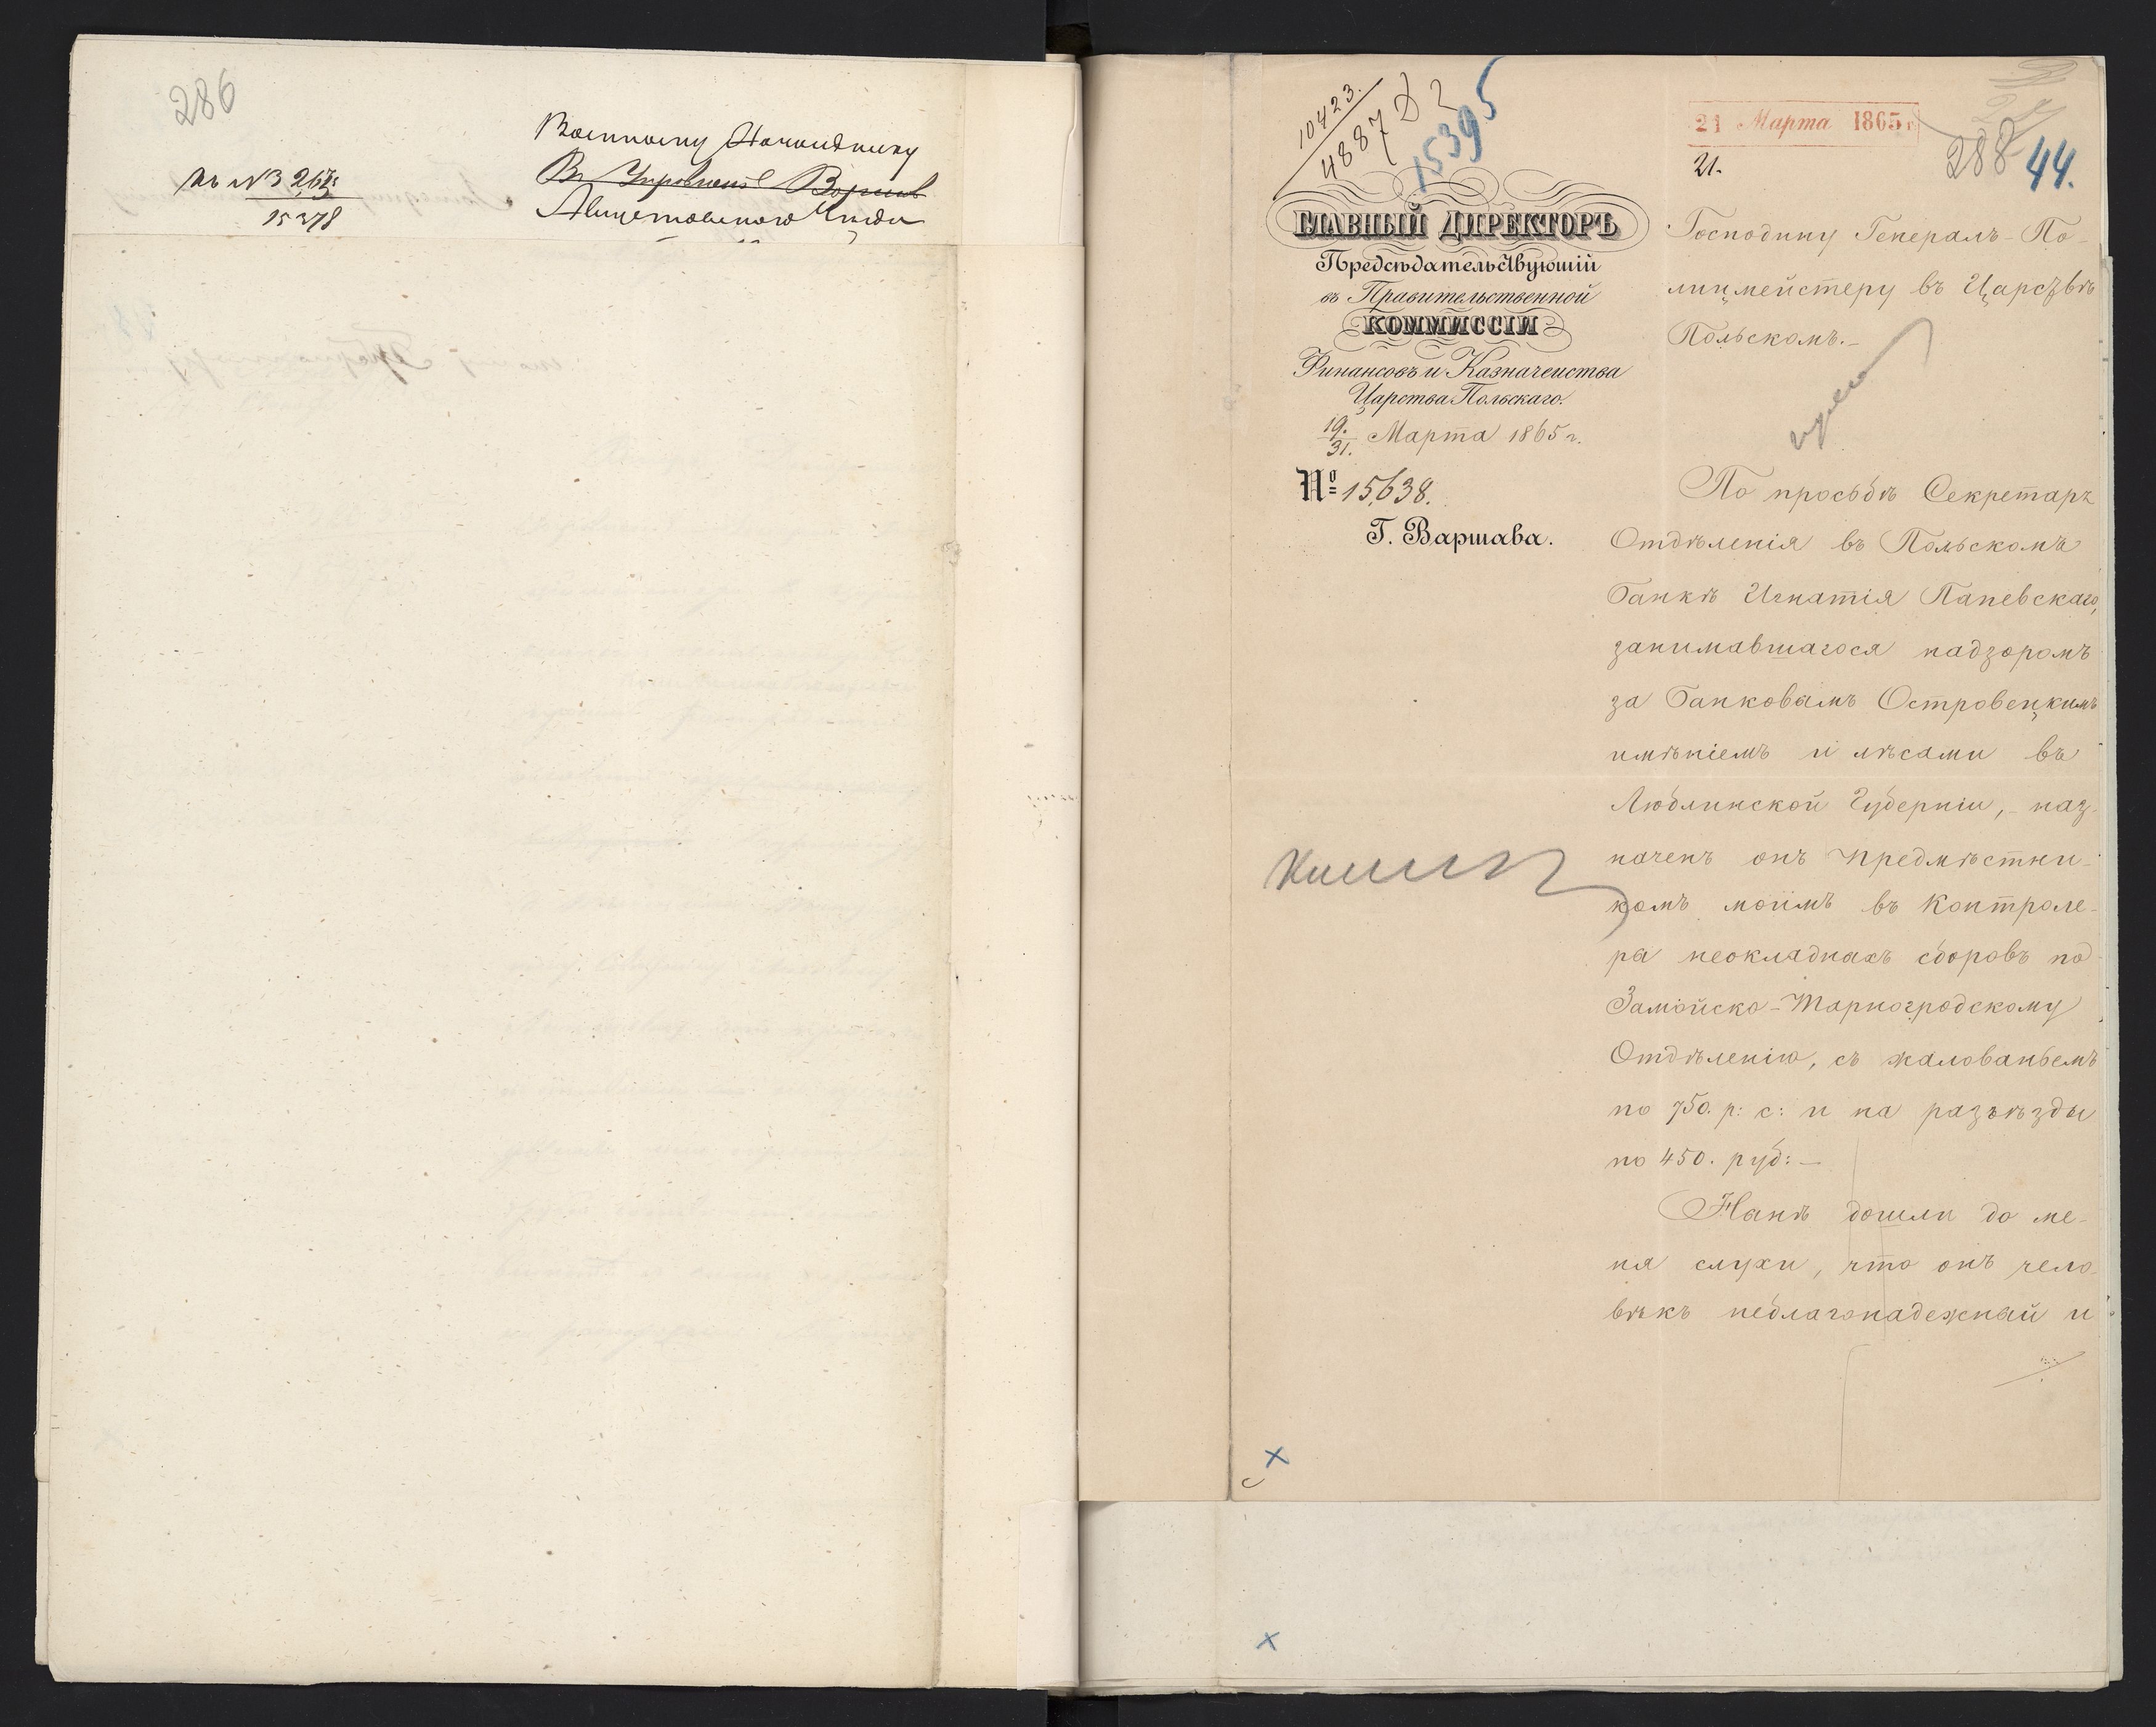 286
Военному Начальнику
къ № 3267
15378
10423.
4887
15395
21 Марта 1865 г
21.
288 44.
ГЛАВНЫЙ ДИРЕКТОРЪ
Предсѣдательствующій
въ Правительственной
КОММИССІИ
Финансовъ и Казначейства
Царства Польскаго.
19./31. Марта 1865 г.
№ 15,638.
Г. Варшава.
Господину Генералъ-По-
лицмейстеру въ Царствѣ
Польскомъ.-
По просьбѣ Секретаря
Отдѣленія въ Польскомъ
Банкѣ Игнатія Паневскаго,
занимавшагося надзоромъ
за Банковымъ Островецкимъ
имѣніемъ и лѣсами въ
Люблинской Губерніи, - наз-
наченъ онъ предмѣстни-
комъ моимъ въ Контроле-
ра неокладныхъ сборовъ по
Замойско-Тарногродскому
Отдѣленію, съ жалованьемъ
по 750. р: с: и на разъѣзды
по 450. руб: —
Нынѣ дошли до ме-
ня слухи, что онъ чело-
вѣкъ неблагонадежный и